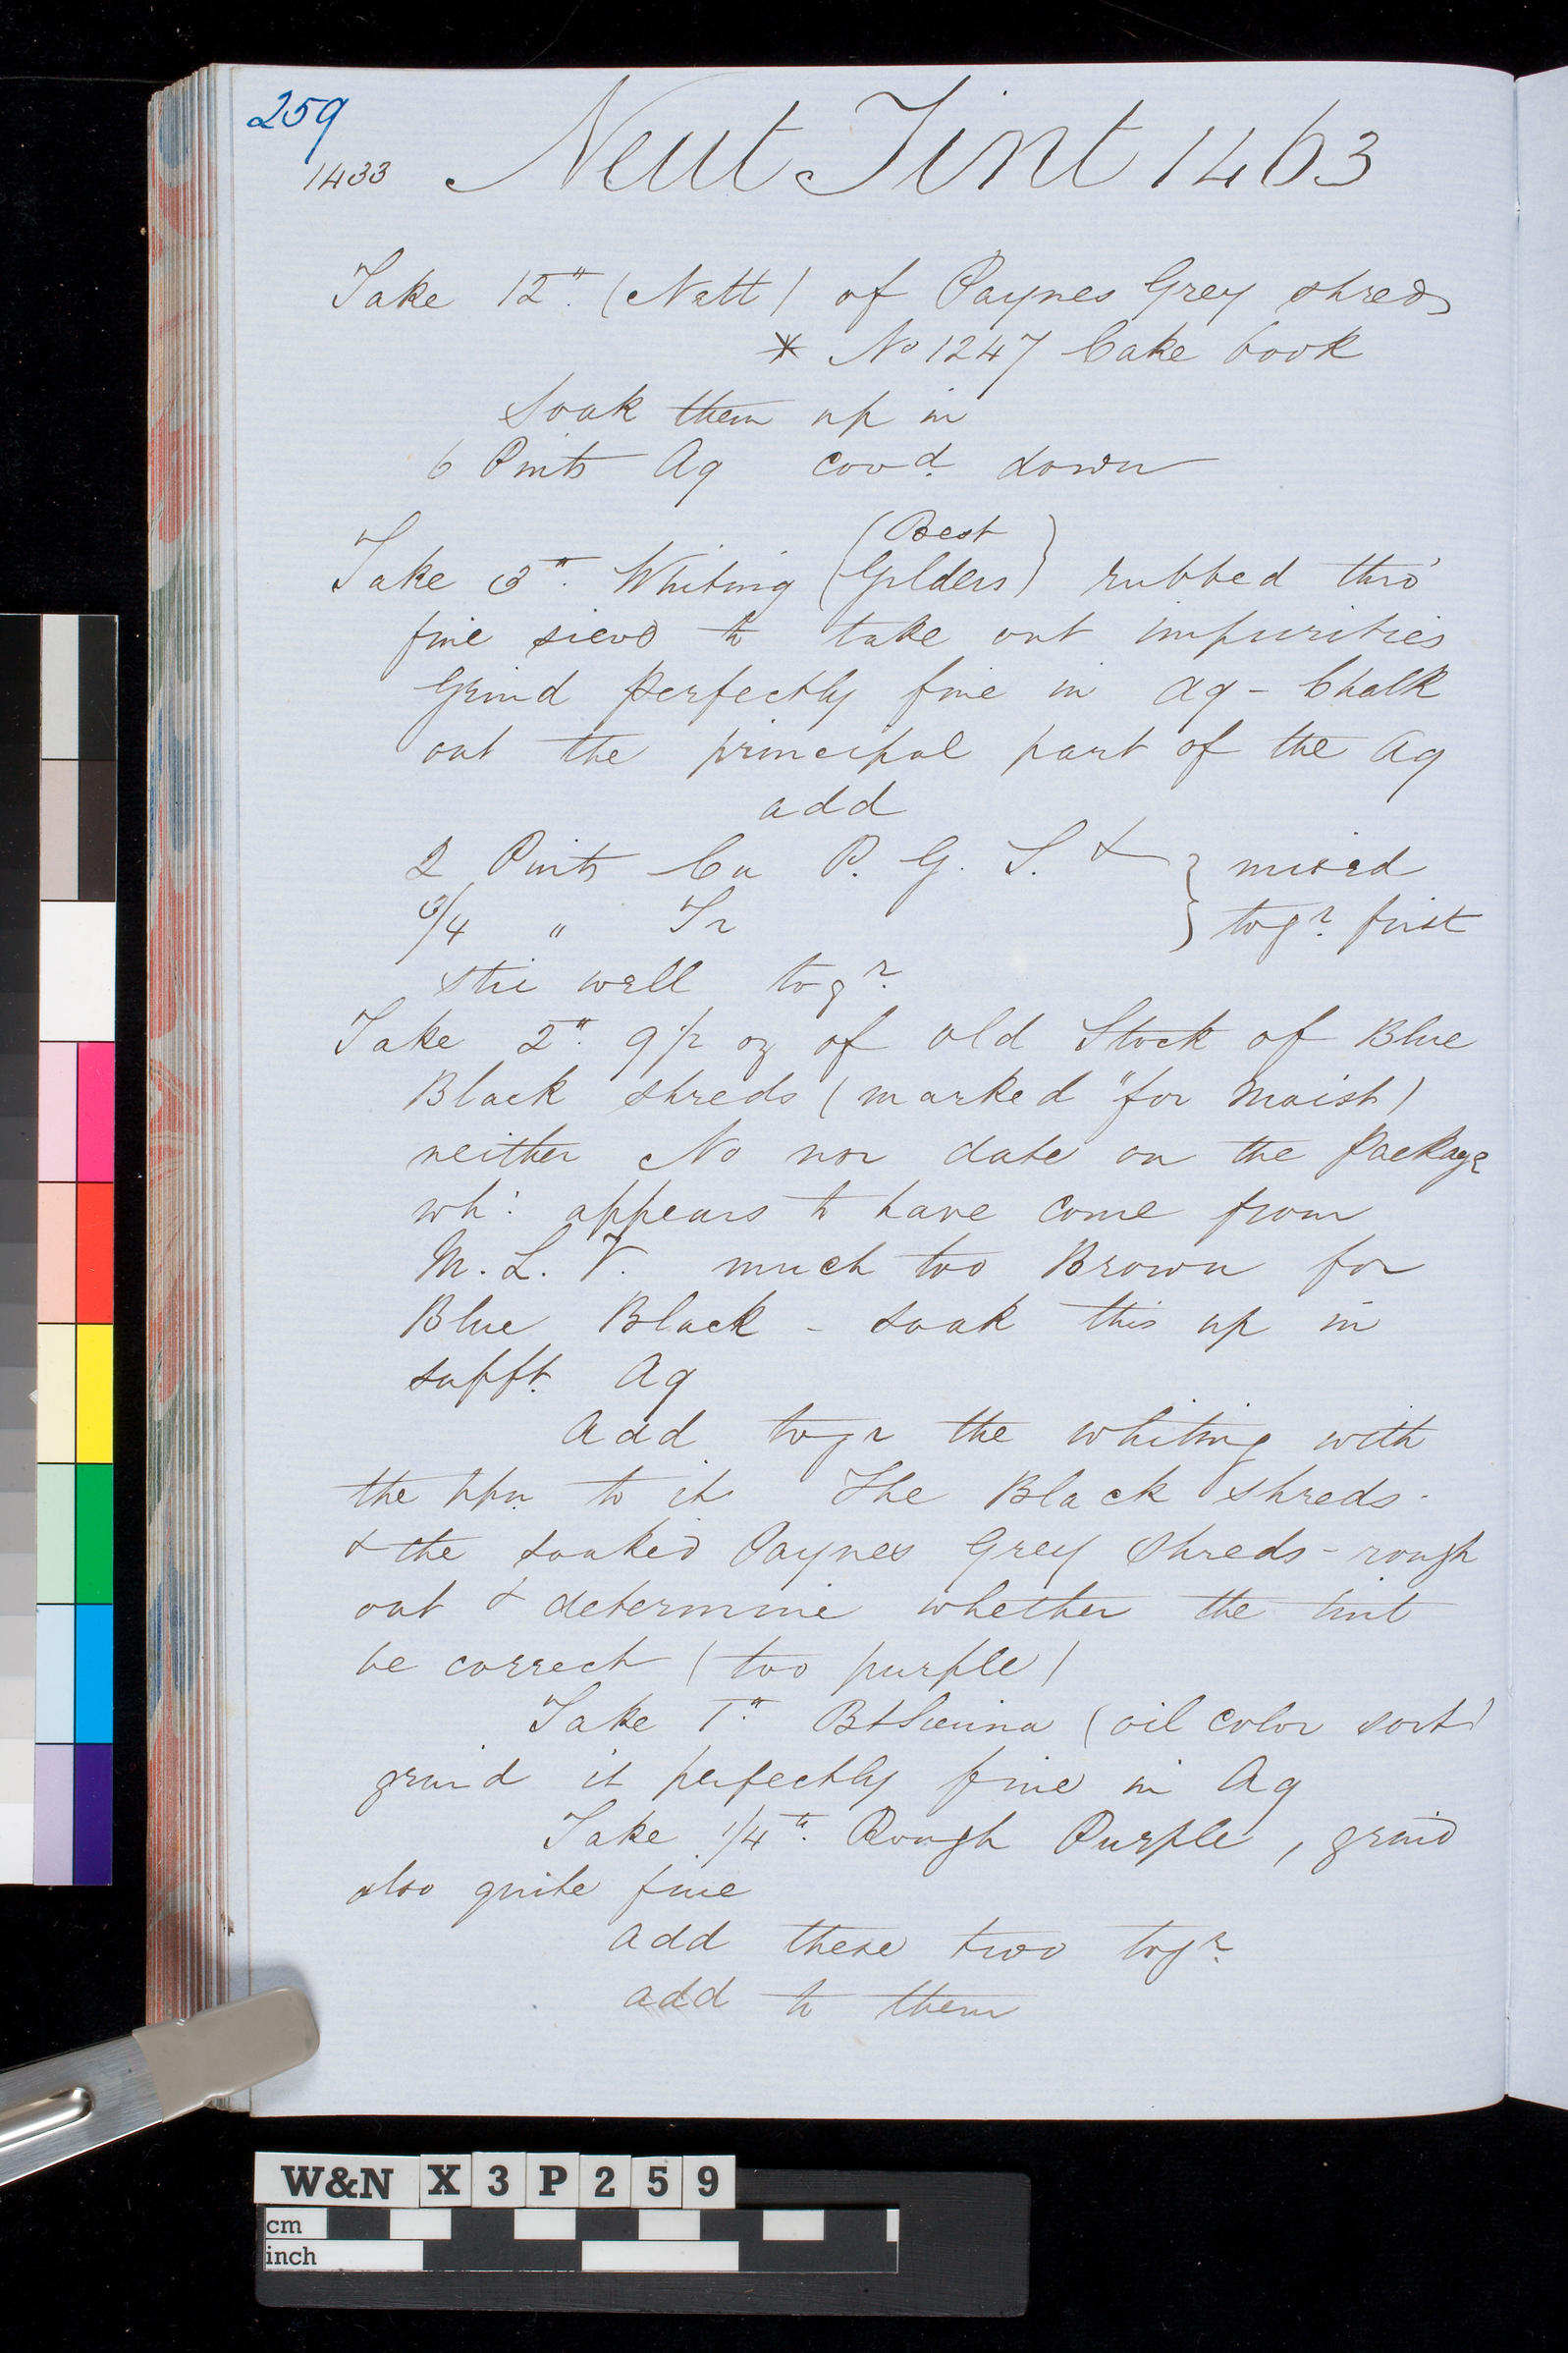 259
1433 Neut Tint 1463
Take 12". (Natt) of Paynes Grey shreds
* No 1247 Cake book
Soak them up in
6 Pints Aq covd. down
(Best
Take 3". Whiting (Gilders) rubbed thro'
fine sieve to take out impurities
Grind perfectly fine in Aq - Chalk
out the principal part of the Aq
add
2 Pints Cu P. G. S. & } mixed
3/4 " Tr } togr. first
stir well togr.
Take 2". 9 1/2 oz of old Stock of Blue
Black shreds (marked "for moist)
neither No nor date on the package
wh: appears to have come from
M. L. V. much too Brown for
Blue Black - soak this up in
sufft. Aq
Add togr the whiting with
the ppn to it The Black shreds -
& the soaked Paynes Grey Shreds - rough
out & determine whether the tint
be correct (too purple)
Take 1". Bt Sienna (oil color sort)
grind it perfectly fine in Aq
Take 1/4". Rough Purple, grind
also quite fine
add these two togr.
add to them
W&N X 3 P 2 5 9
cm
inch